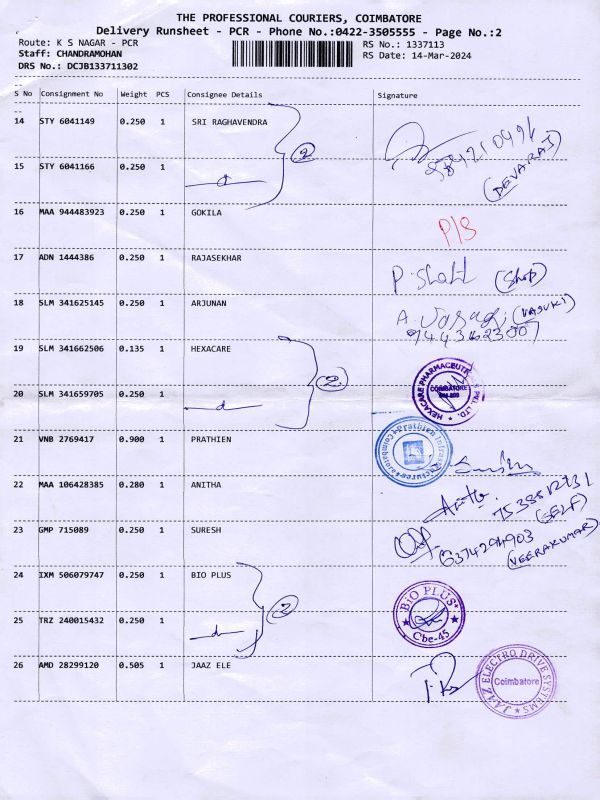 THE PROFESSIONAL COURIERS, COIMBATORE
Delivery Runsheet - PCR - Phone No.:0422-3505555 - Page No.:2
Route: K S NAGAR - PCR RS No.: 1337113
Staff: CHANDRAMOHAN RS Date: 14-Mar-2024
DRS No.: DCJB133711302
S No Consignment No Weight PCS Consignee Details Signature
14 STY 6041149 0.250 1 SRI RAGHAVENDRA
2
(DEVARAJ)
15 STY 6041166 0.250 1
16 MAA 944483923 0.250 1 GOKILA P/S
17 ADN 1444386 0.250 1 RAJASEKHAR (Shop)
18 SLM 341625145 0.250 1 ARJUNAN (VASUKI)
19 SLM 341662506 0.135 1 HEXACARE
2 HEXACARE PHARMACEUTICALS PVT. LTD. COIMBATORE
20 SLM 341659705 0.250 1
21 VNB 2769417 0.900 1 PRATHIEN Prathien Infrastructures Coimbatore
22 MAA 106428385 0.280 1 ANITHA Anitha (SELF)
23 GMP 715089 0.250 1 SURESH 6374294903 (VEERAKUMAR)
24 IXM 506079747 0.250 1 BIO PLUS
2 BIO PLUS Cbe-45
25 TRZ 240015432 0.250 1
26 AMD 28299120 0.505 1 JAAZ ELE JAAZ ELECTRO DRIVE SYSTEMS Coimbatore